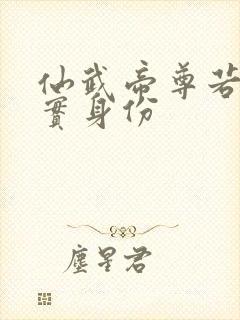 仙武帝尊若
實身份
塵星君